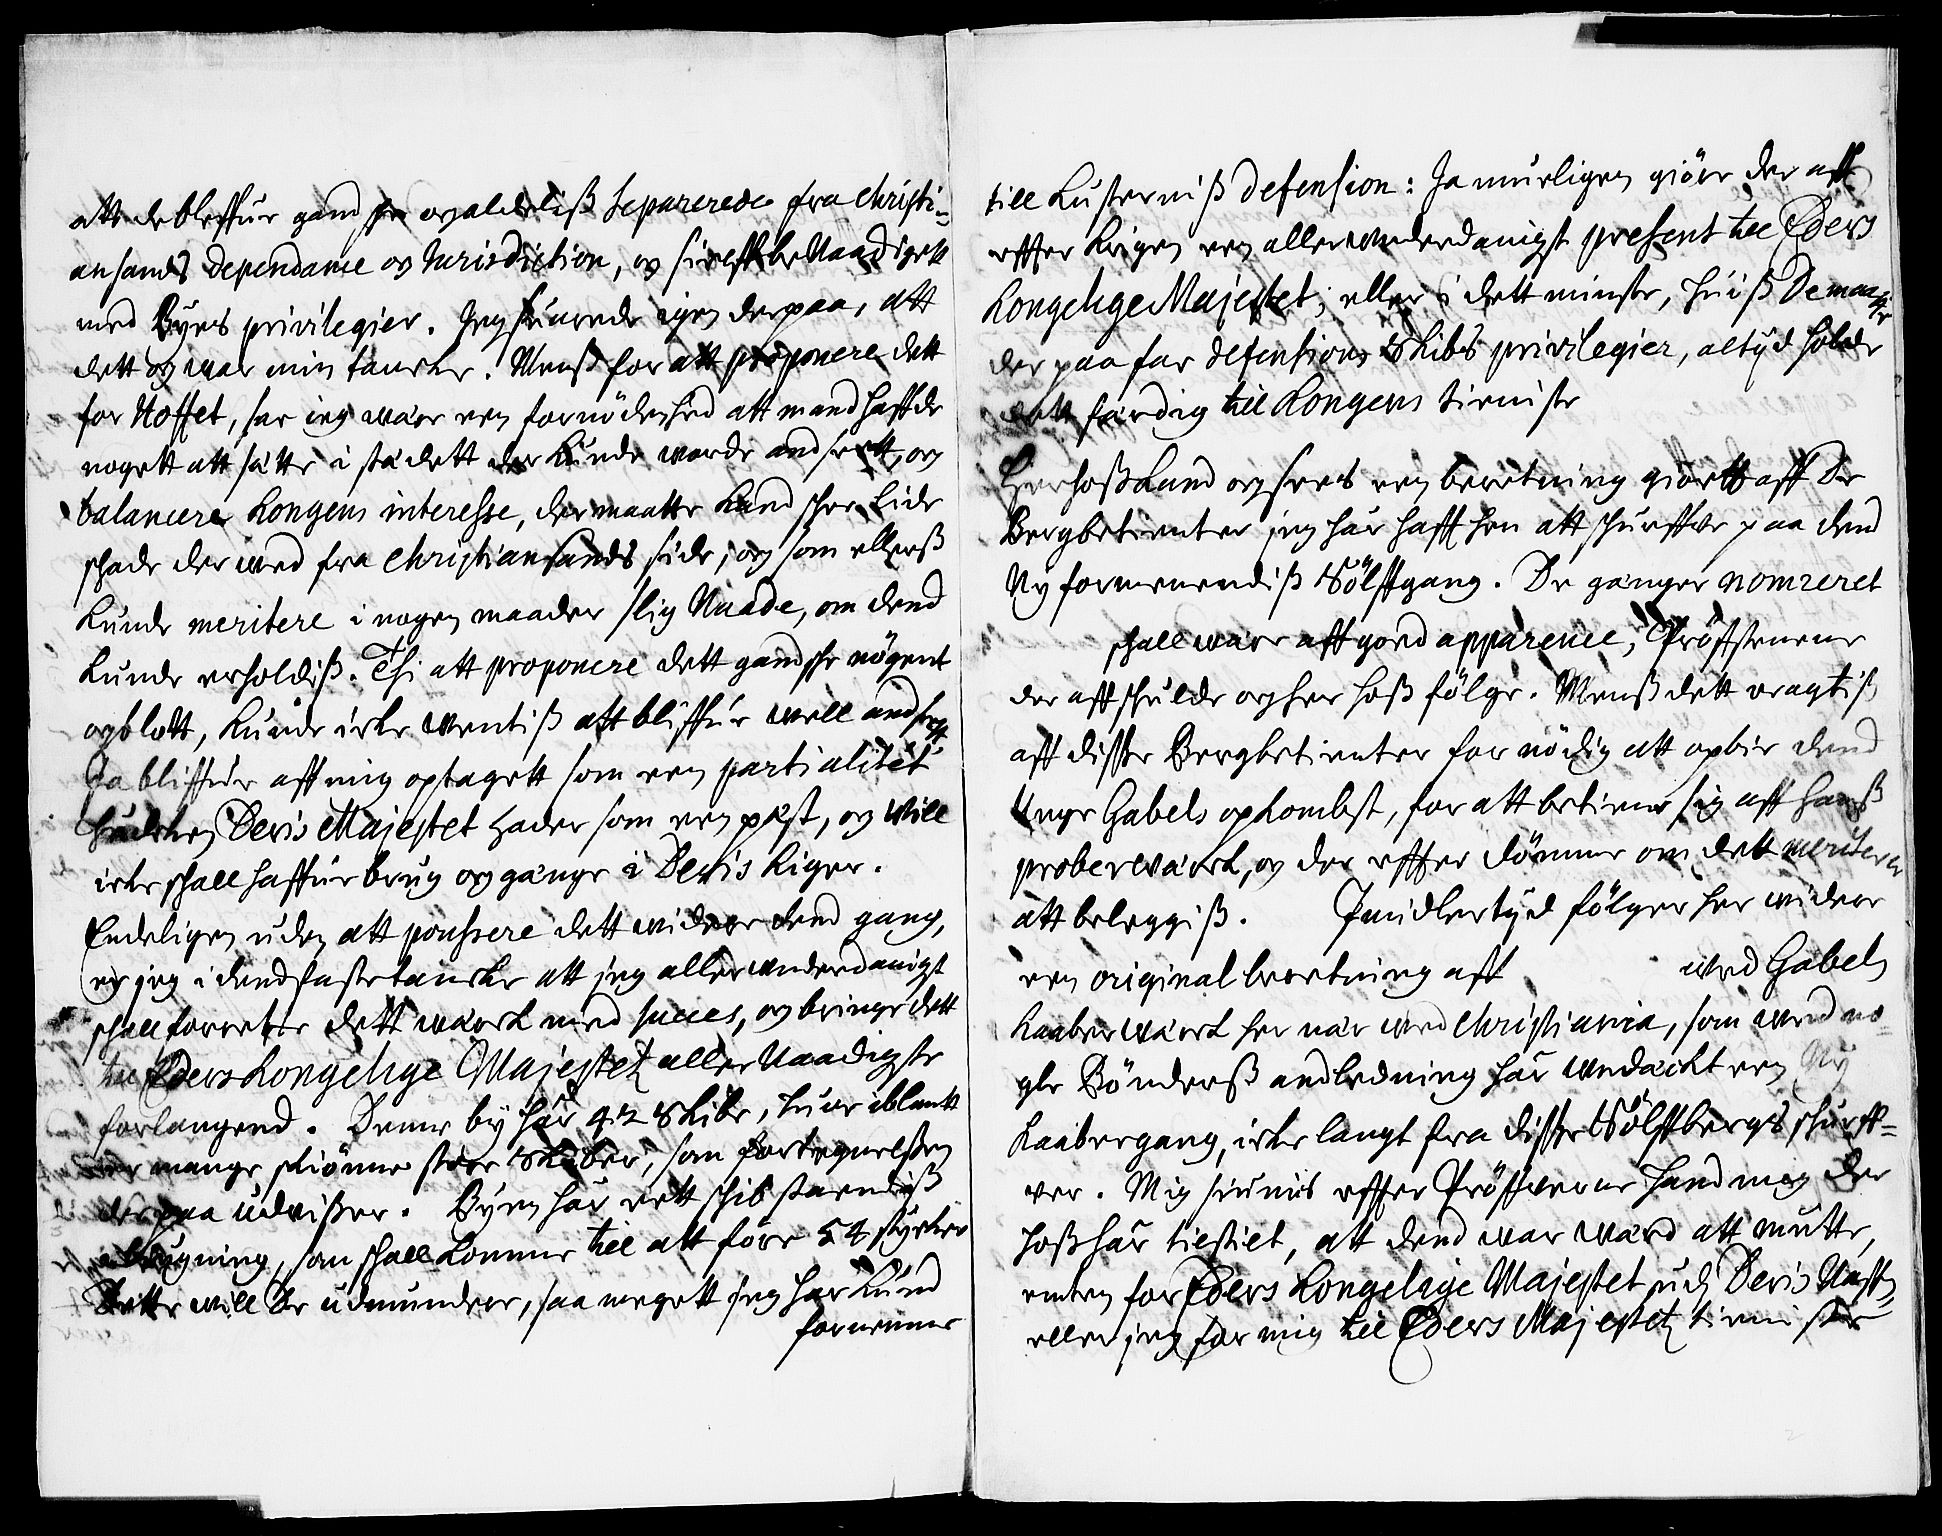 att de bleffue gand og aldeliss Separerede fra Christi-
ansands dependance og Jurisdiction, og siden benaadigett
med Byes privilegier. Jeg suarede igen derpaa, att
dett og war min tancke. Menss for att proponere dett
for Hoffet, saa ieg være een fornödenhed att mand haffde
nogett att sätte i stä dett der kunde worde andseett, og
balancere Kongens interesse, der maatte kand schee lide
schade der wed fra Christiansands side, og som ellerss
kunde meritere i nogen maader slig Naade, om dend
kunde erholdiss. Thi att proponere dett gandsche nögent
og blott, kunde icke wentiss att bliffue well andseett
Ja bliffue aff mig optagett som een partialitet
huilcken Deris Majestet hader som een pest, og will
icke schall haffue brug og gänge i Deris Riger.
Endeligen uden att poussere dett widere dend gang,
er jeg i dend faste tancke att jeg allerunderdanigst
schall forrette dett wärck med succes, og bringe dett
till Eders Kongelige Majestetz aller Naadigste
forlangend. Denne by har 42 Skibe, huor iblant
er mange skiönne store Skibe, som fortegnelssen
der paa uduisser. Byen har ett schib staendiss
i bygning, som schall komme till att före 52 stycker
Dette will de udmundere, saa megett jeg har kund
fornemme
till Lusterniss defension: Ja mueligen giöre der aff
effter krigen een allerunderdanigst present till Eders
Kongelige Majestet, eller i dett minste, huiss De maatte
der paa faa defensions Skibs privilegier, altijd holde
dett färdig till Kongens tieniste
Herhoss kand og sees een beretning giortt aff De
Bergbetienter jeg har hafft hen att schurffve paa dend
Ny formenendiss Sölffgang. De gänger nomreret
schall wære aff goed apparence, Pröffstenene
der aff schulde og her hoss fölge. Menss dett eragtiss
aff disse Bergbetienter for nödig att opbie dend
Unge Gabels opkombst, for att betiene sig aff hanss
proberwärck, og der effter dömme om dett meriterer
att beleggiss. Imidlertijd fölger her widere
een original beretning aff wed Gabels
Kaaberwärck her när wed Christiania, som wed no-
gle Bönderss andledning har undäckt een Ny
Kaabergang, icke langt fra disse Sölffbergs schurff-
ver. Mig siunis effter Pröffverne hand mig der
hoss har tilstilet, att dend war wärd att mutte,
enten for Eders Kongelige Majestet udj Deris Naffn
eller jeg for mig till Eders Majestetz tieniste-